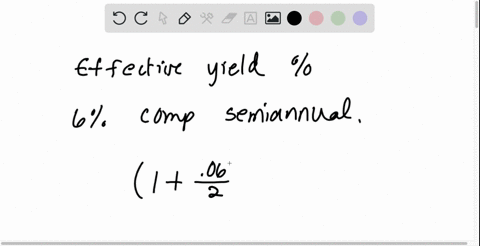 Effective yield %
6% comp semiannual.
(1 + .06/2